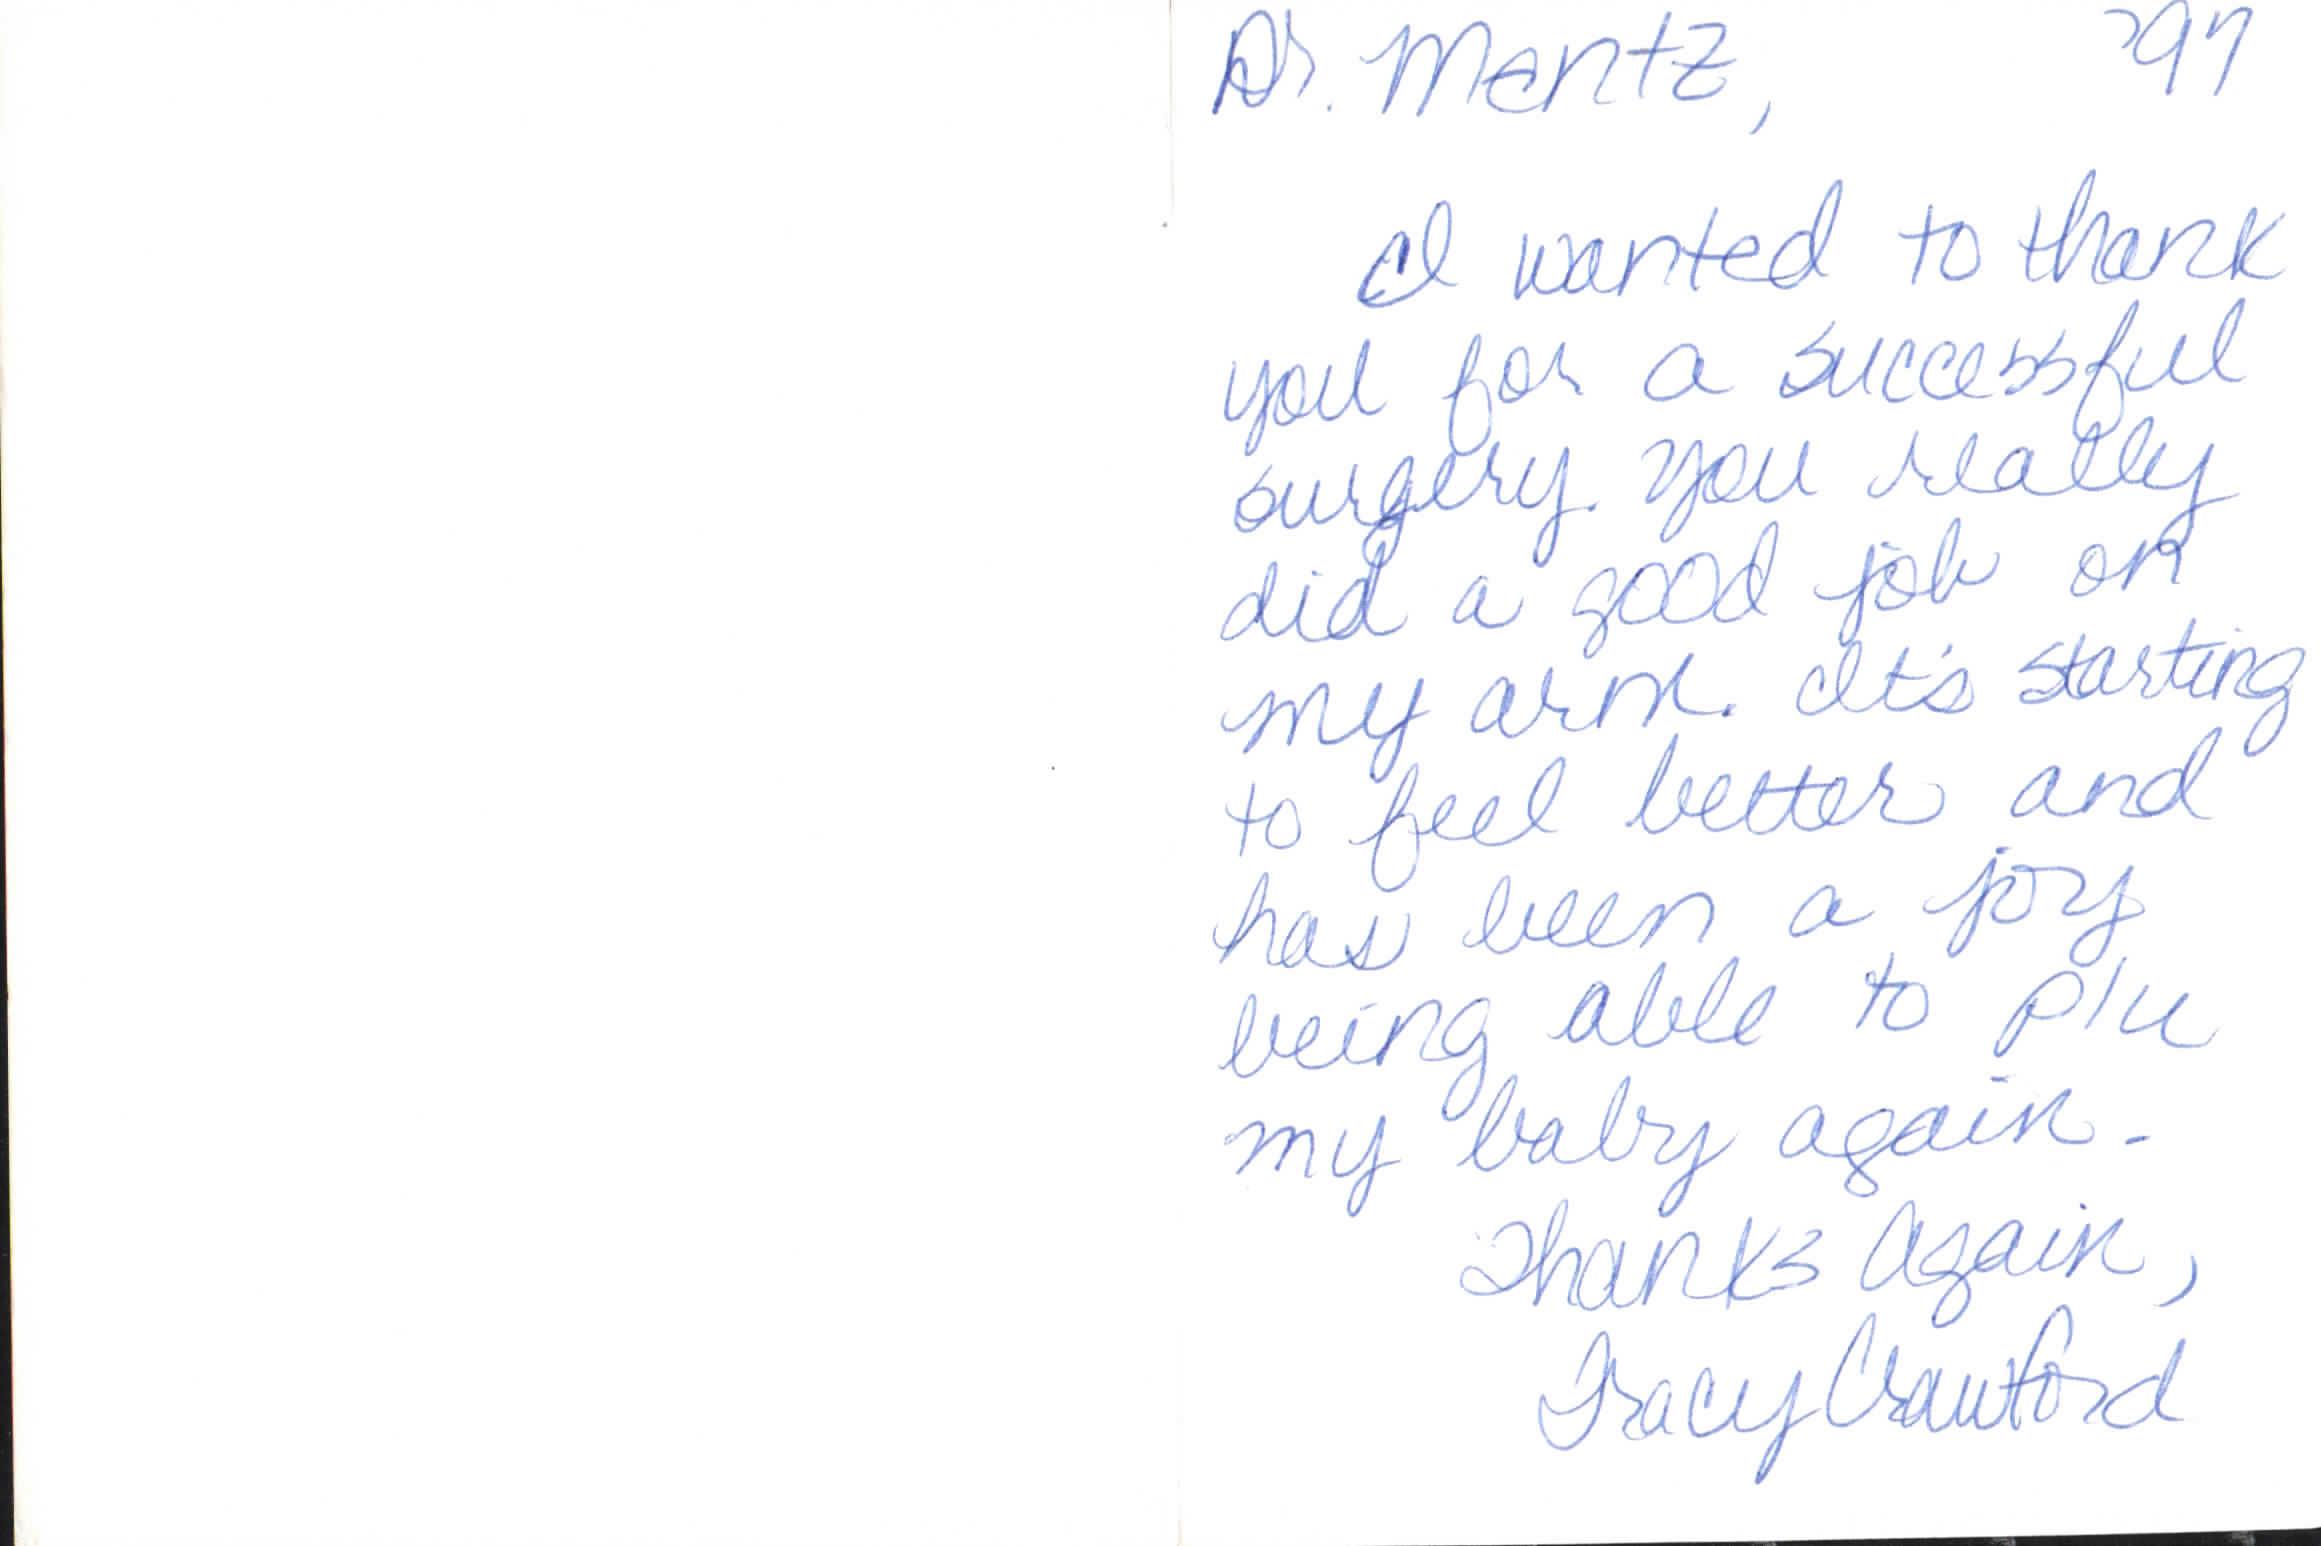 Dr. Mentz, '97
I wanted to thank
you for a successful
surgery. You really
did a good job on
my arm. It's starting
to feel better and
has been a joy
being able to p/u
my baby again.
Thanks Again,
Tracy Crawford